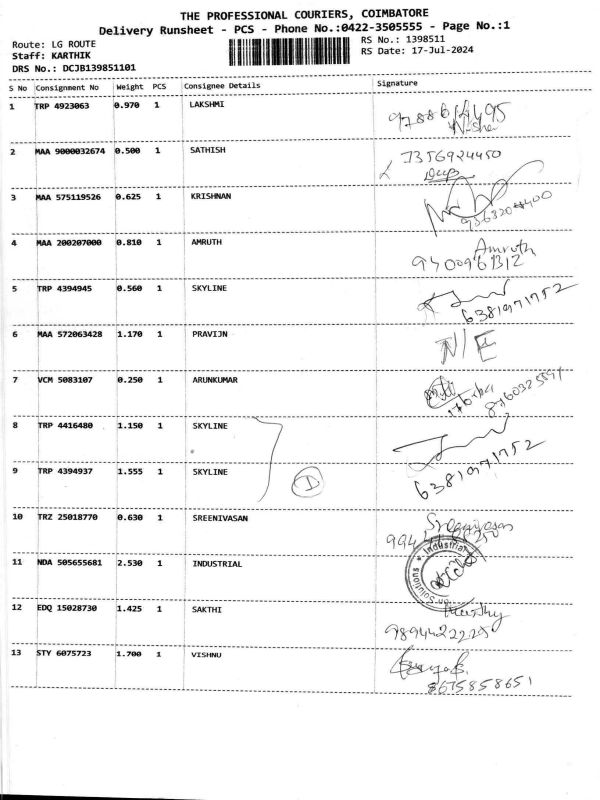 THE PROFESSIONAL COURIERS, COIMBATORE
Delivery Runsheet - PCS - Phone No.:0422-3505555 - Page No.:1
Route: LG ROUTE
RS No.: 1398511
Staff: KARTHIK
RS Date: 17-Jul-2024
DRS No.: DCJB139851101
S No Consignment No Weight PCS Consignee Details Signature
1 TRP 4923063 0.970 1 LAKSHMI
2 MAA 9000032674 0.500 1 SATHISH 7356924450
3 MAA 575119526 0.625 1 KRISHNAN
4 MAA 200207000 0.810 1 AMRUTH Amruth
5 TRP 4394945 0.560 1 SKYLINE
6381971752
6 MAA 572063428 1.170 1 PRAVIJN N/E
7 VCM 5083107 0.250 1 ARUNKUMAR
8 TRP 4416480 1.150 1 SKYLINE
9 TRP 4394937 1.555 1 SKYLINE
6381971752
10 TRZ 25018770 0.630 1 SREENIVASAN
11 NDA 505655681 2.530 1 INDUSTRIAL
Industrial
Solutions
12 EDQ 15028730 1.425 1 SAKTHI
13 STY 6075723 1.700 1 VISHNU
8675858651